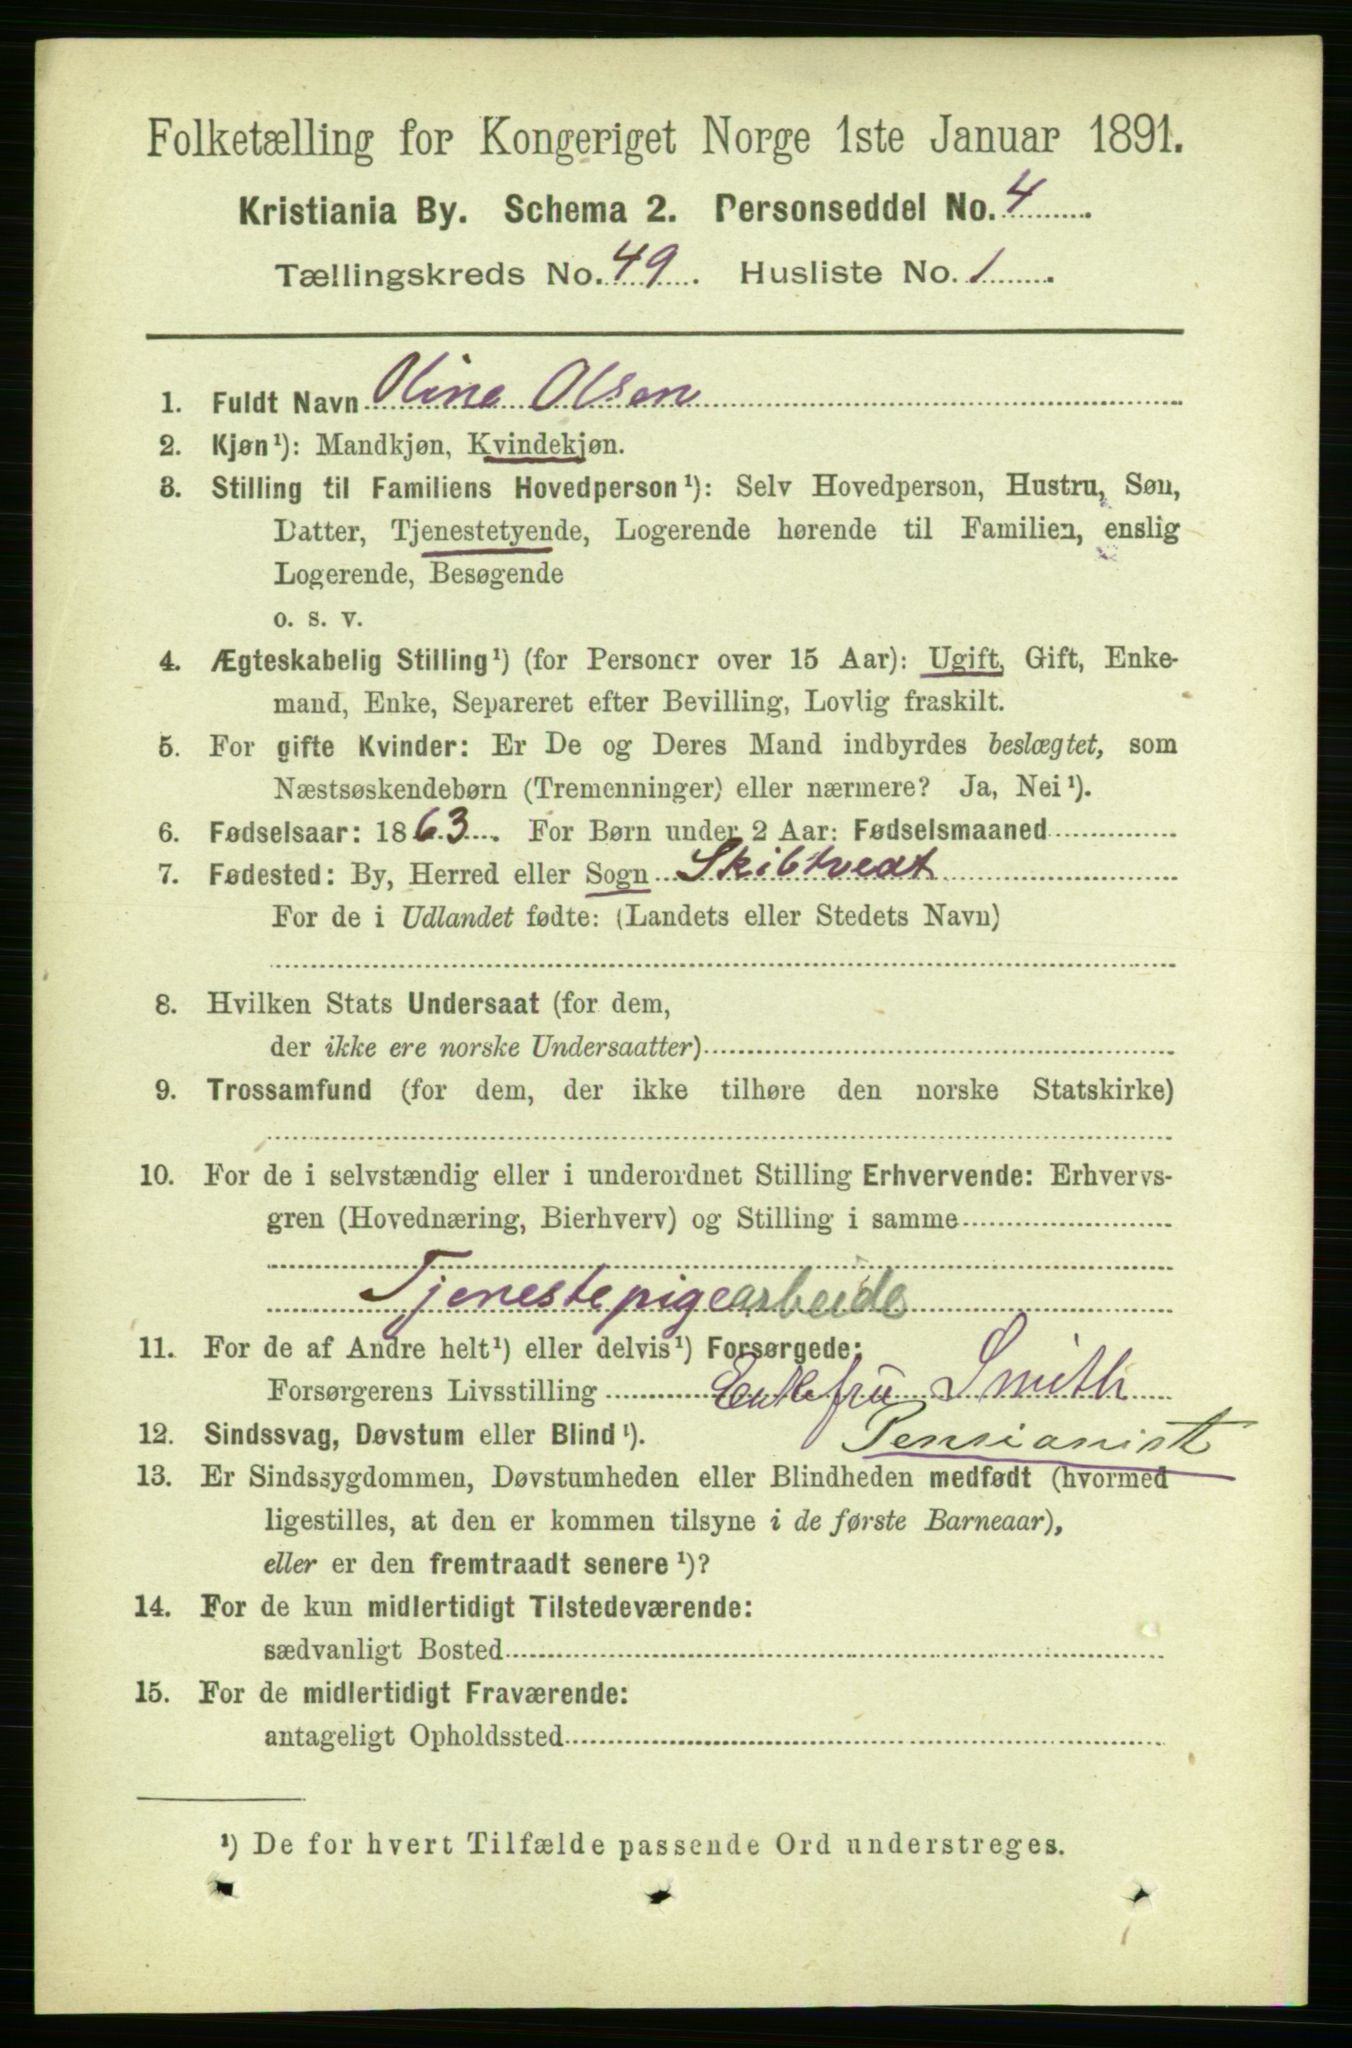 Folketælling for Kongeriget Norge 1ste Januar 1891.
Kristiania By. Schema 2. Personseddel No. 4
Tællingskreds No. 49. Husliste No. 1.
1. Fuldt Navn Oline Olsen
2. Kjøn¹): Mandkjøn, Kvindekjøn.
3. Stilling til Familiens Hovedperson¹): Selv Hovedperson, Hustru, Søn,
Datter, Tjenestetyende, Logerende hørende til Familien, enslig
Logerende, Besøgende
o. s. v.
4. Ægteskabelig Stilling¹) (for Personer over 15 Aar): Ugift, Gift, Enke-
mand, Enke, Separeret efter Bevilling, Lovlig fraskilt.
5. For gifte Kvinder: Er De og Deres Mand indbyrdes beslægtet, som
Næstsøskendebørn (Tremenninger) eller nærmere? Ja, Nei¹).
6. Fødselsaar: 1863. For Børn under 2 Aar: Fødselsmaaned
7. Fødested: By, Herred eller Sogn Skibtvedt
For de i Udlandet fødte: (Landets eller Stedets Navn)
8. Hvilken Stats Undersaat (for dem,
der ikke ere norske Undersaatter)
9. Trossamfund (for dem, der ikke tilhøre den norske Statskirke)
10. For de i selvstændig eller i underordnet Stilling Erhvervende: Erhvervs-
gren (Hovednæring, Bierhverv) og Stilling i samme
Tjenestepigearbeide
11. For de af Andre helt¹) eller delvis¹) Forsørgede:
Forsørgerens Livsstilling Enkefru Smith
12. Sindssvag, Døvstum eller Blind¹). Pensianist
13. Er Sindssygdommen, Døvstumheden eller Blindheden medfødt (hvormed
ligestilles, at den er kommen tilsyne i de første Barneaar),
eller er den fremtraadt senere¹)?
14. For de kun midlertidigt Tilstedeværende:
sædvanligt Bosted
15. For de midlertidigt Fraværende:
antageligt Opholdssted
¹) De for hvert Tilfælde passende Ord understreges.